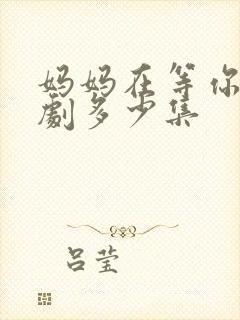 妈妈在等你
劇多少集
吕莹